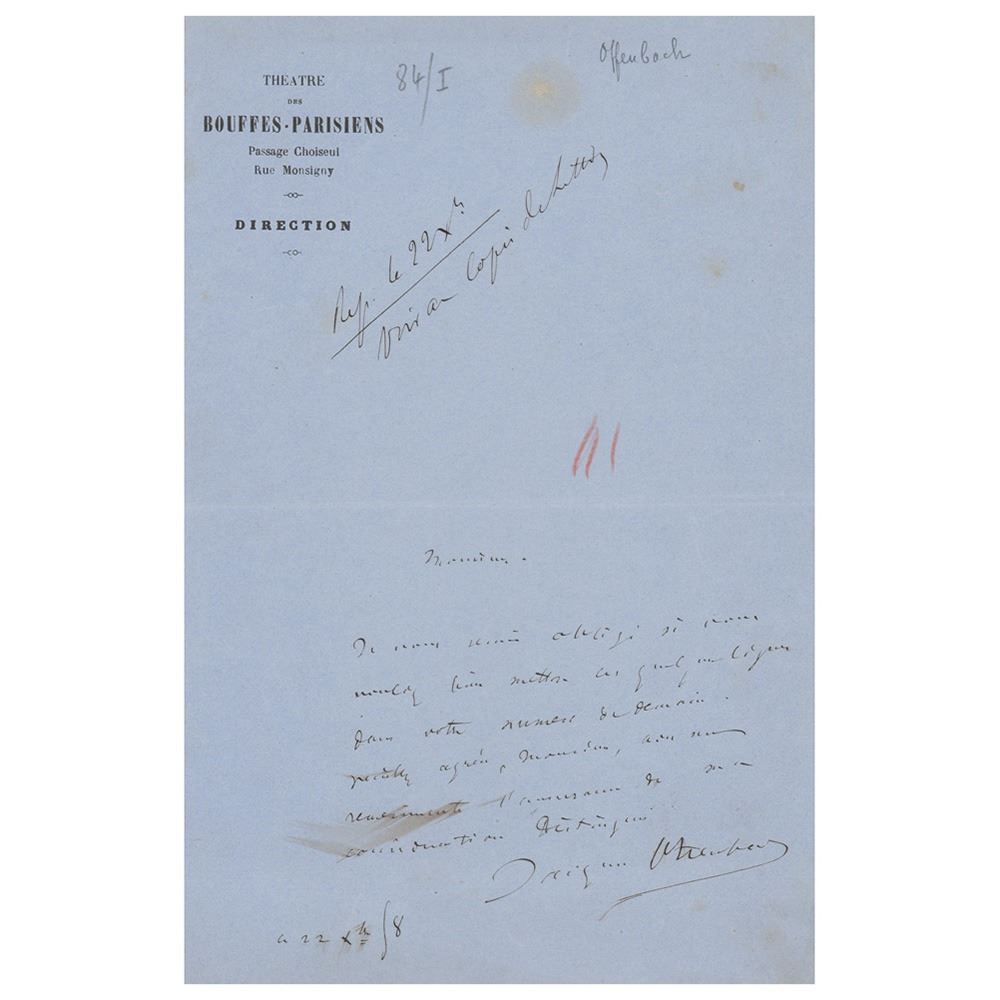 THEATRE
DES
BOUFFES-PARISIENS
Passage Choiseul
Rue Monsigny
DIRECTION
84/I
Offenbach
Rep. le 22 Xbre
Voir au Copie de Lettres
Monsieur.
Je vous serais obligé si vous
voulez bien mettre ces quelques lignes
dans votre numero de demain.
veuillez agréer, Monsieur, avec mes
remerciments l'assurance de ma
consideration distinguée
Jacques Offenbach
22 Xbre 58